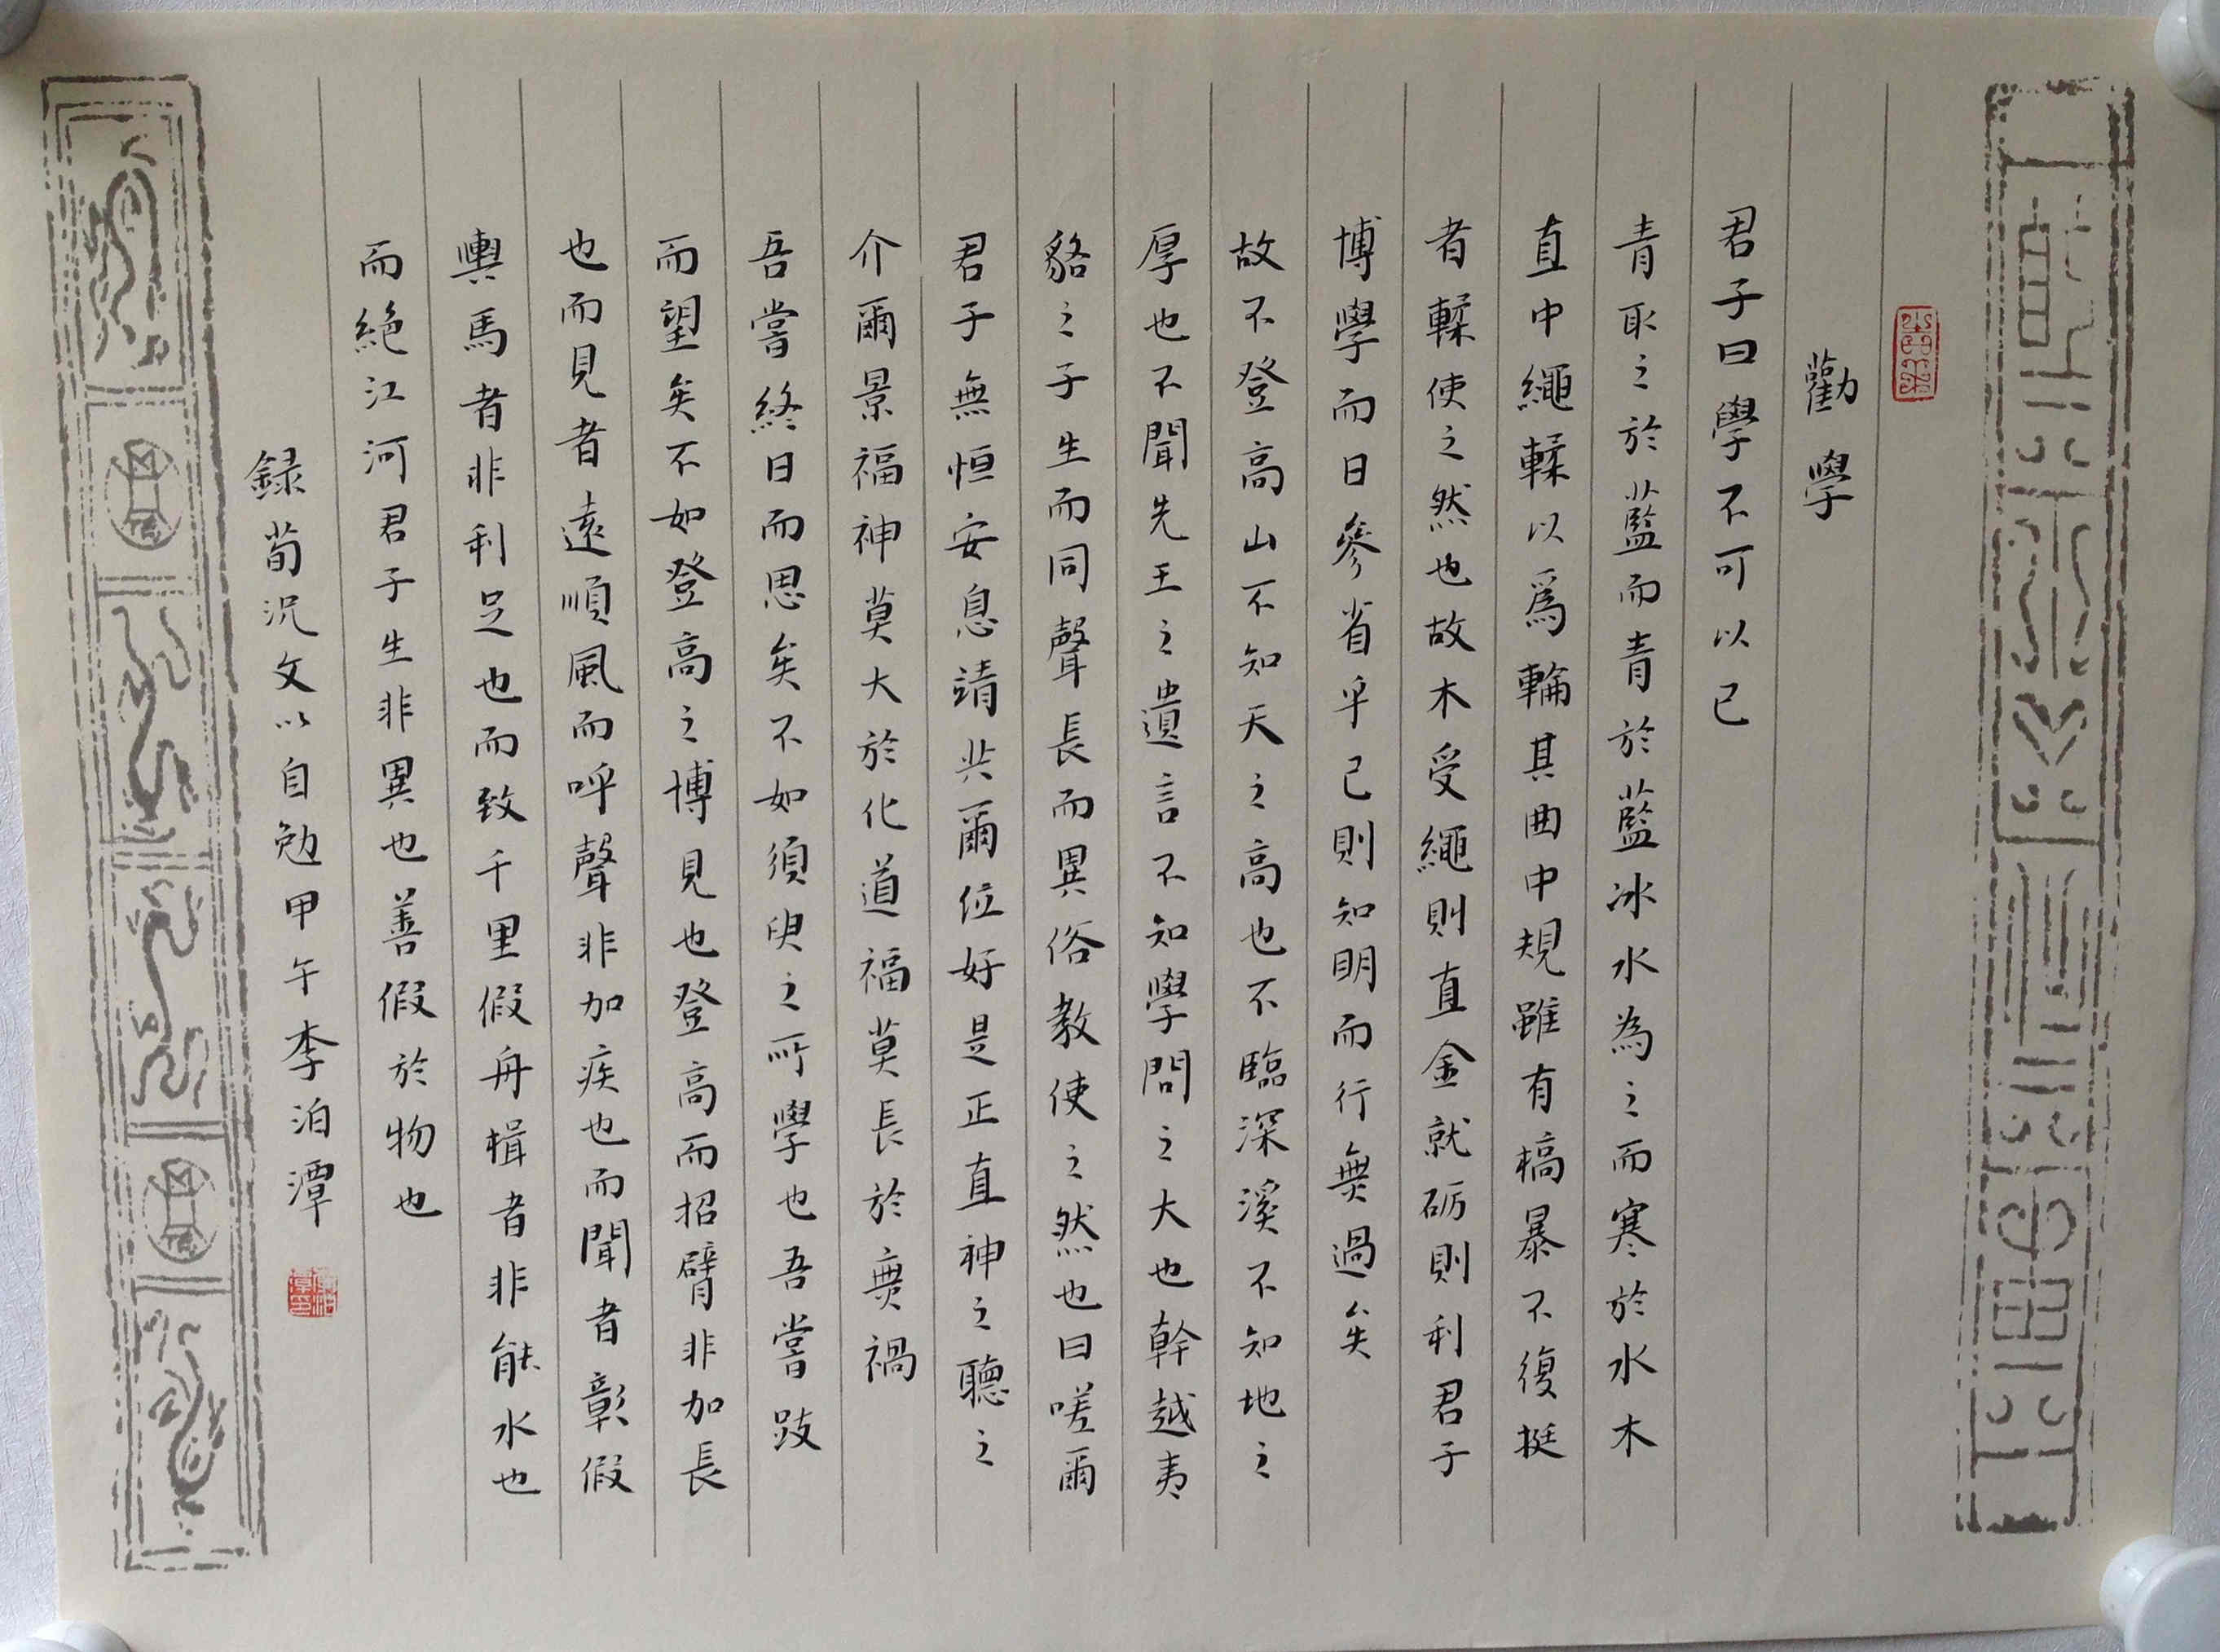 勸學
君子曰學不可以已
青取之於藍而青於藍冰水為之而寒於水木
直中繩輮以爲輪其曲中規雖有槁暴不復挺
者輮使之然也故木受繩則直金就砺則利君子
博學而日參省乎己則知明而行無過矣
故不登高山不知天之高也不臨深溪不知地之
厚也不聞先王之遺言不知學問之大也幹越夷
貉之子生而同聲長而異俗教使之然也曰嗟爾
君子無恒安息靖共爾位好是正直神之聽之
介爾景福神莫大於化道福莫長於無禍
吾嘗終日而思矣不如須臾之所學也吾嘗跂
而望矣不如登高之博見也登高而招臂非加長
也而見者遠順風而呼聲非加疾也而聞者彰假
輿馬者非利足也而致千里假舟楫者非能水也
而絕江河君子生非異也善假於物也
録荀況文以自勉甲午李泊潭